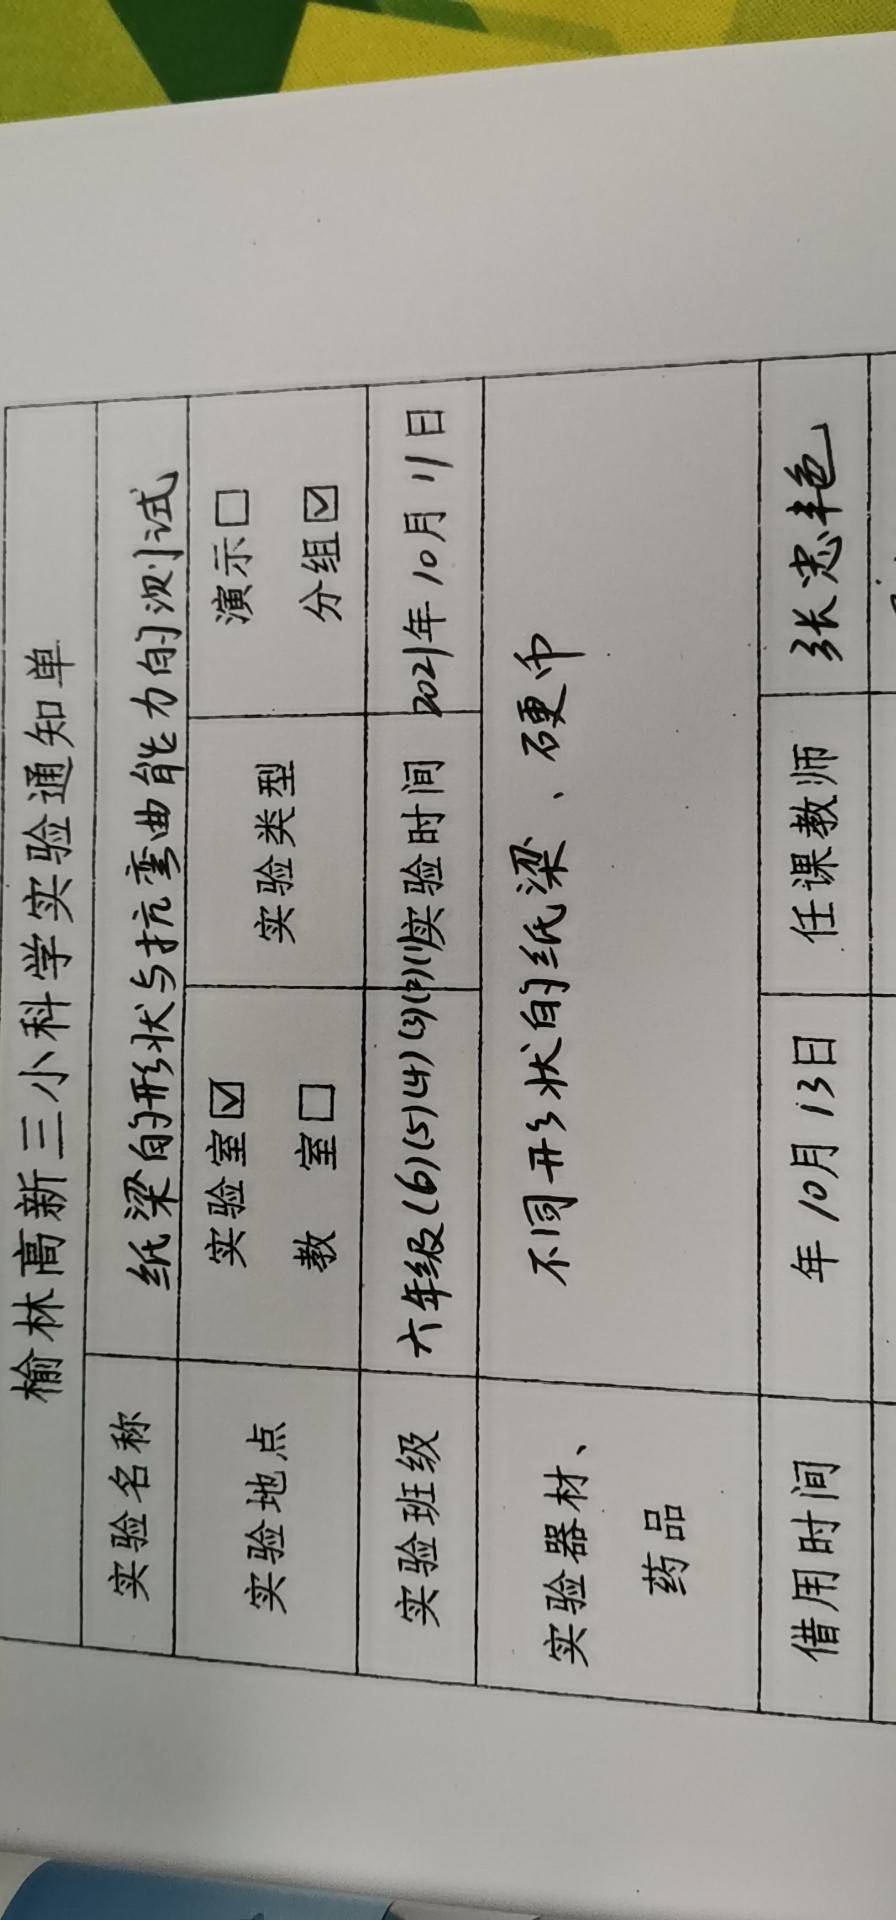 榆林高新三小科学实验通知单
实验名称 纸梁的形状与抗弯曲能力的测试
实验地点 实验室☑ 教 室□ 实验类型 演示□ 分组☑
实验班级 六年级(6)(5)(4)(3)(2)(1) 实验时间 2021年10月11日
实验器材、药品 不同形状的纸梁、硬币
借用时间 年10月13日 任课教师 张忠艳